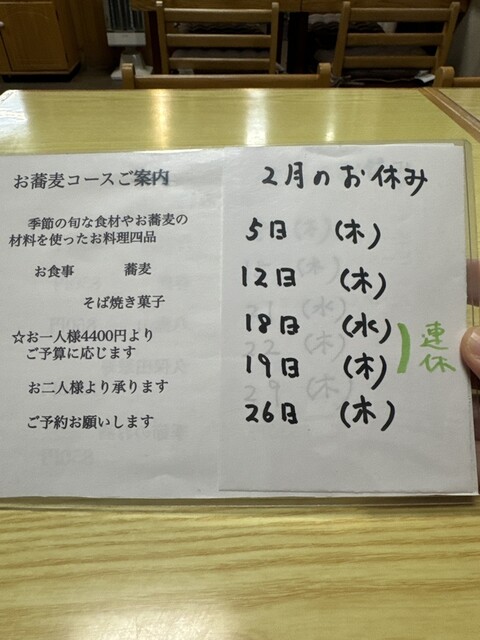 お蕎麦コースご案内
季節の旬な食材やお蕎麦の
材料を使ったお料理四品
お食事 蕎麦
そば焼き菓子
☆お一人様4400円より
ご予算に応じます
お二人様より承ります
ご予約お願いします
2月のお休み
5日 (木)
12日 (木)
18日 (水)
19日 (木)
連休
26日 (木)